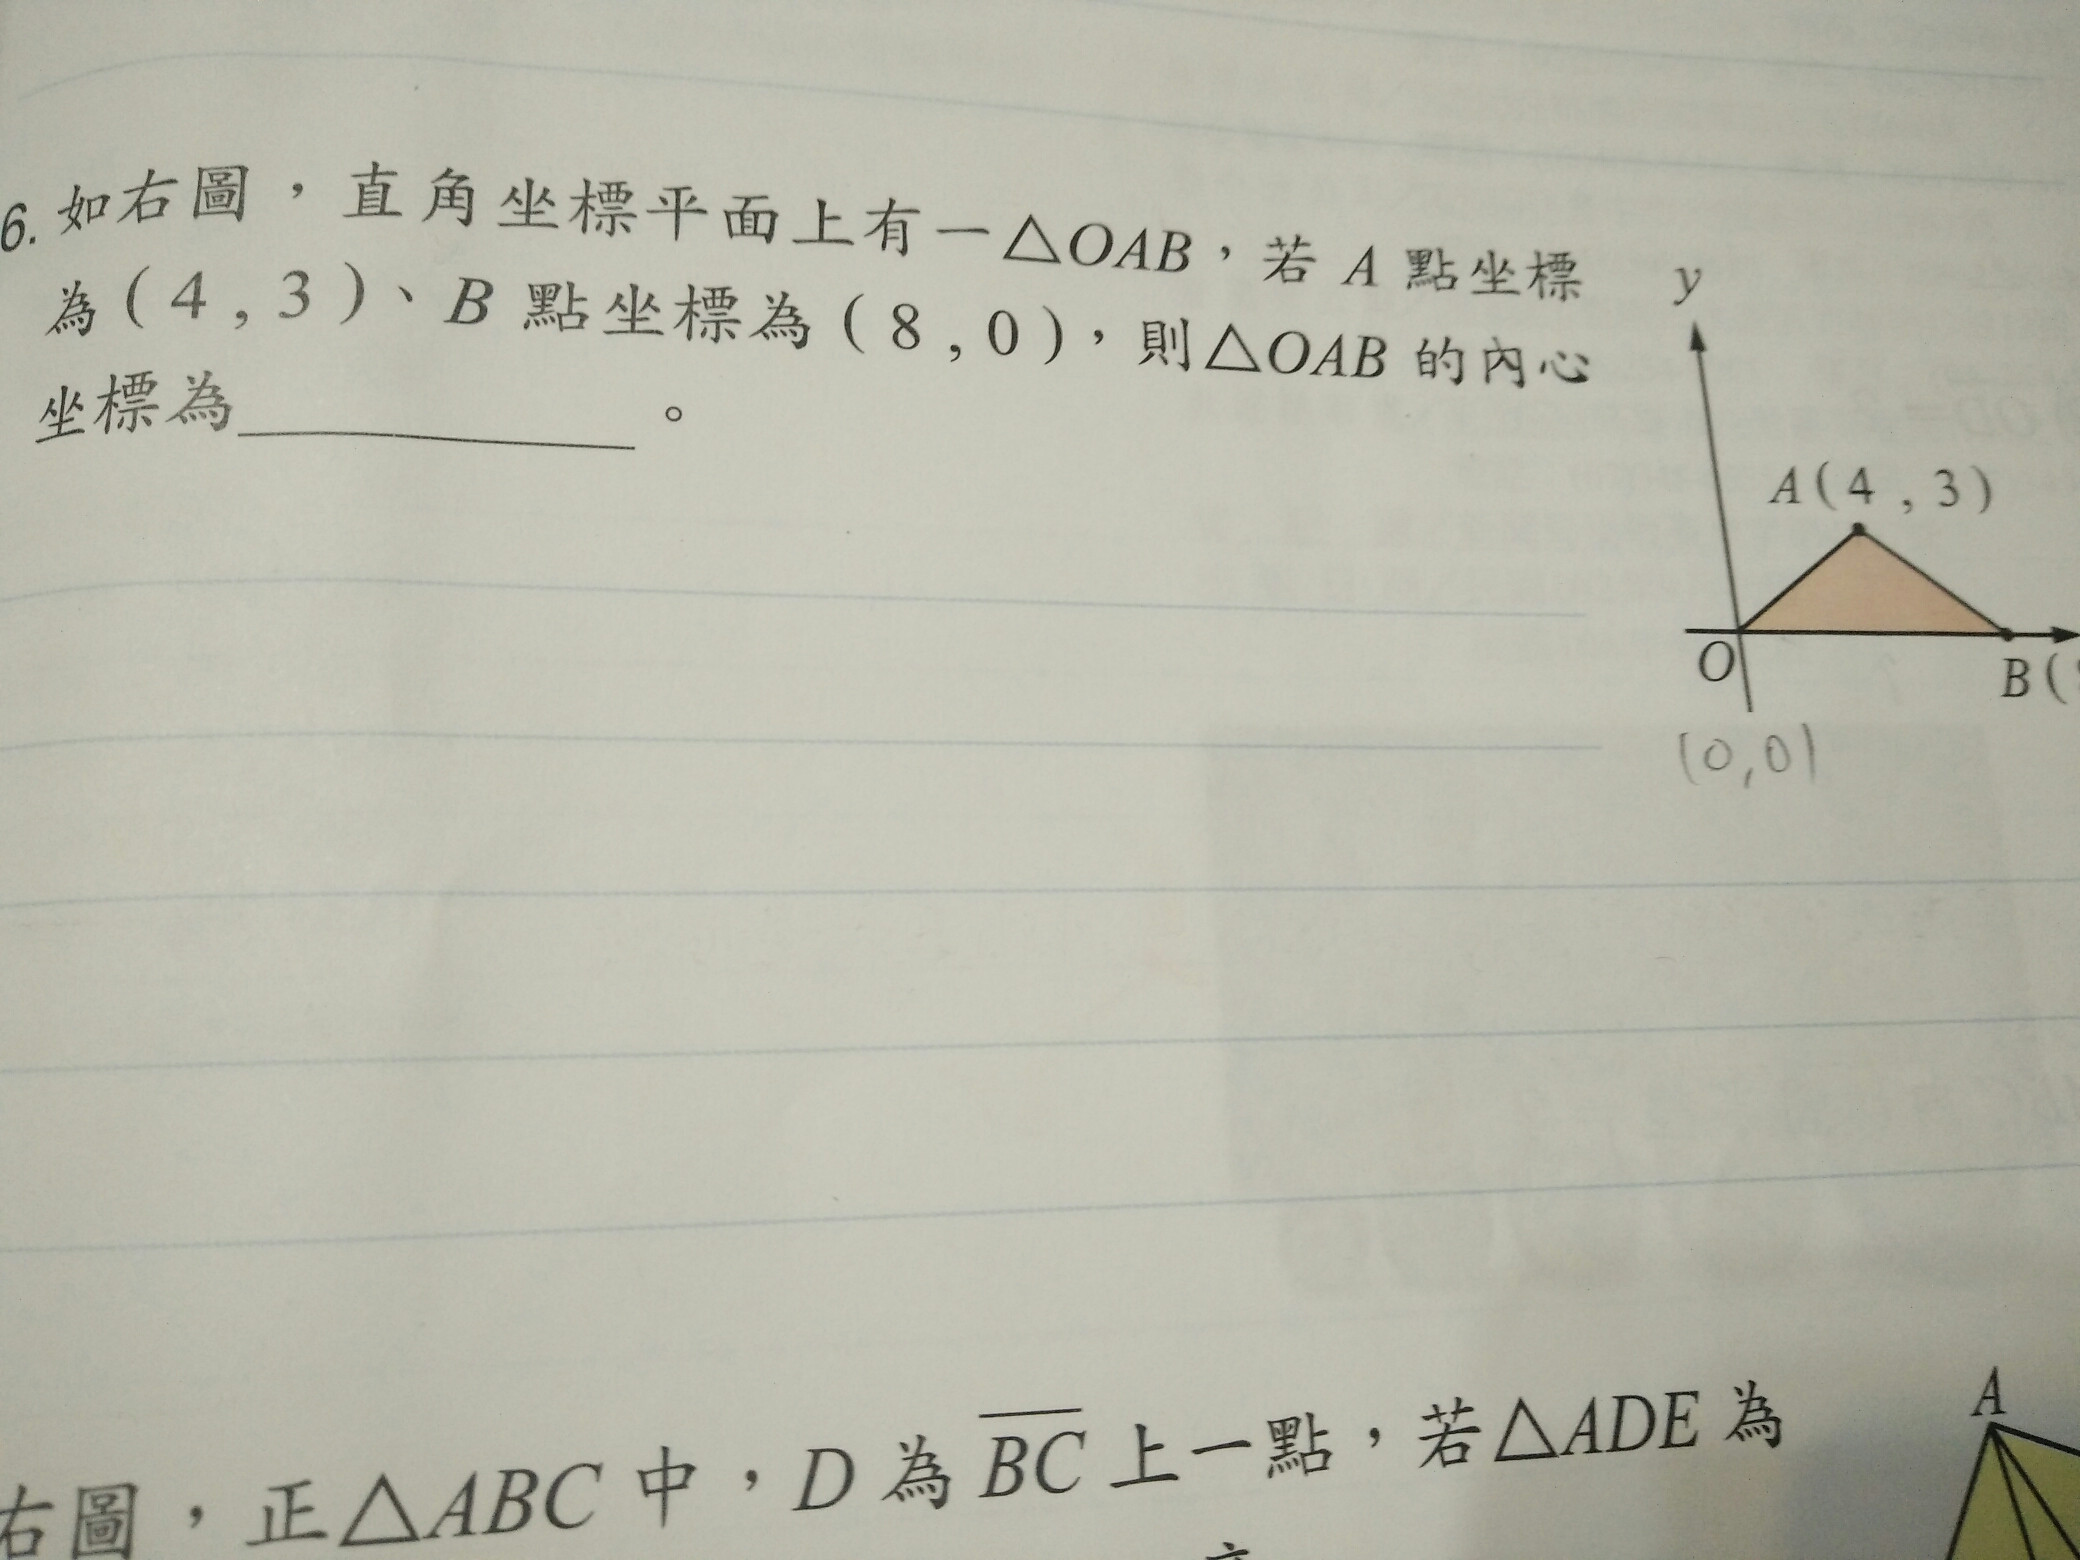 6. 如右圖，直角坐標平面上有一△OAB，若 A 點坐標
為(4,3)、B 點坐標為(8,0)，則△OAB 的內心
坐標為＿＿＿＿＿＿。
y
A(4,3)
O
B(
(0,0)
右圖，正△ABC 中，D 為 BC 上一點，若△ADE 為
A